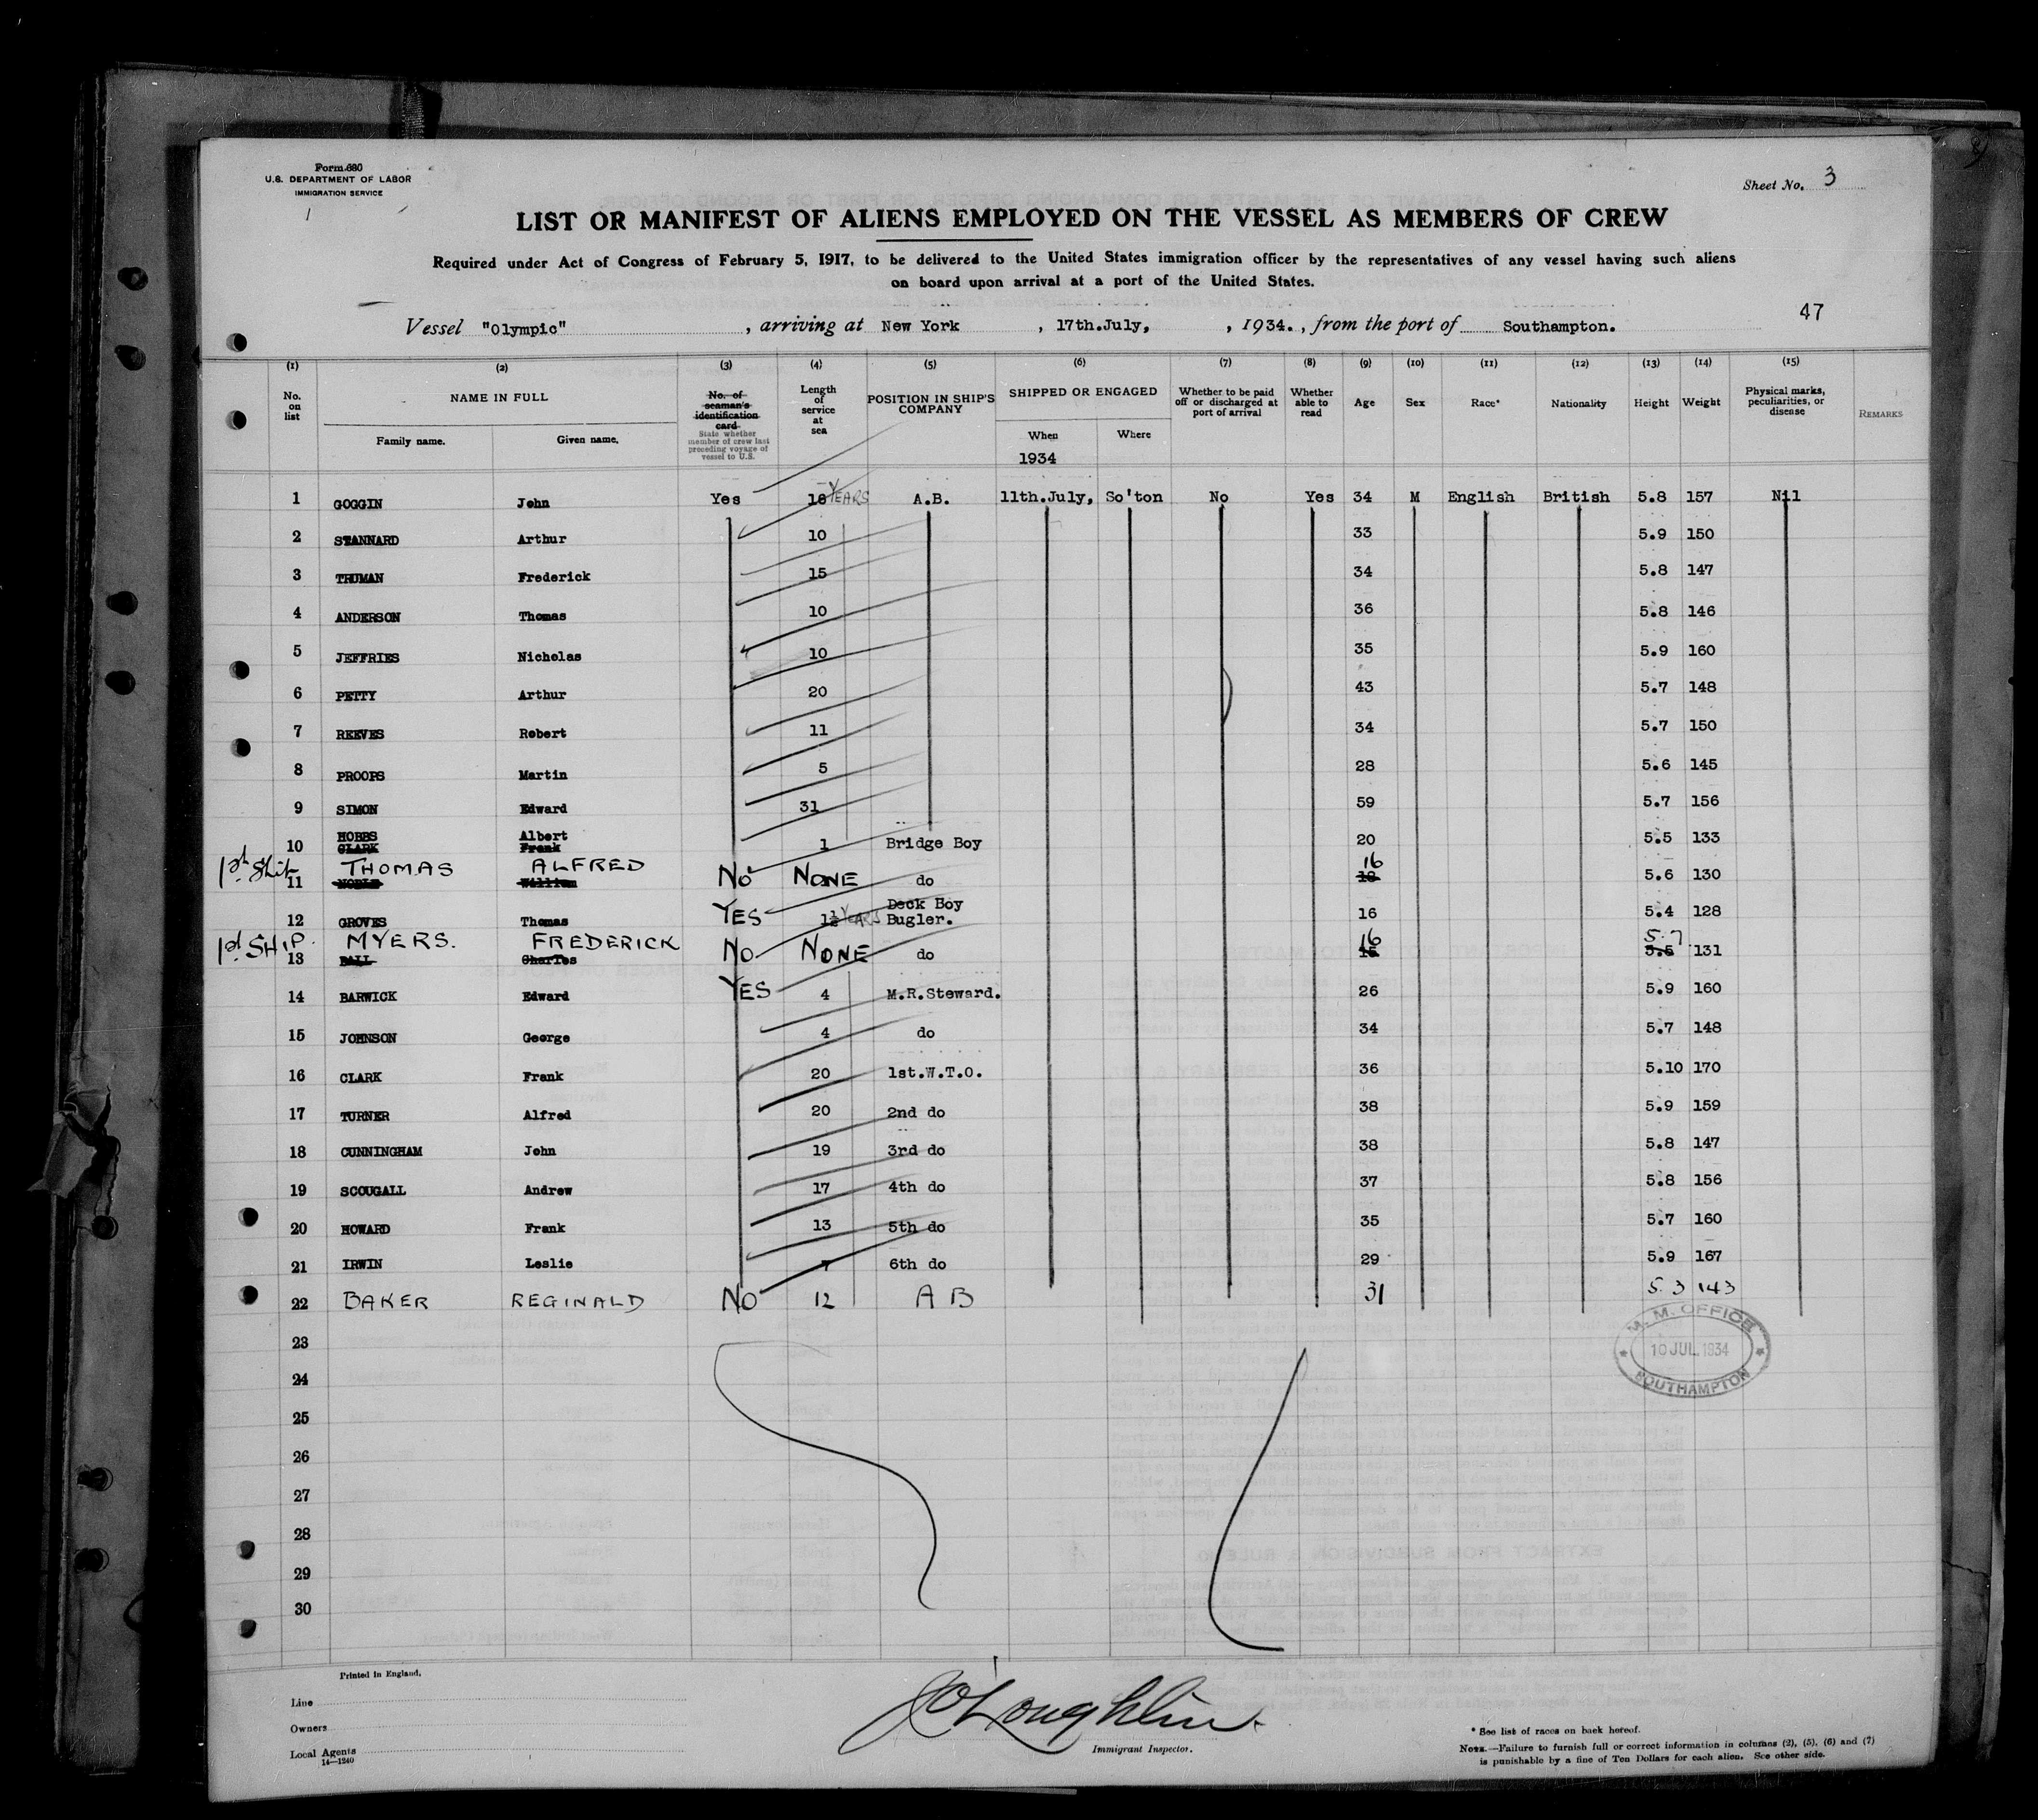 Form 680
U.S. DEPARTMENT OF LABOR
IMMIGRATION SERVICE
Sheet No. 3
LIST OR MANIFEST OF ALIENS EMPLOYED ON THE VESSEL AS MEMBERS OF CREW
Required under Act of Congress of February 5, 1917, to be delivered to the United States immigration officer by the representatives of any vessel having such aliens
on board upon arrival at a port of the United States.
47
Vessel "Olympic", arriving at New York, 17th.July, , 1934., from the port of Southampton.
(1) (2) (3) (4) (5) (6) (7) (8) (9) (10) (11) (12) (13) (14) (15)
No. on list NAME IN FULL Family name. Given name. No. of seaman's identification card State whether member of crew last preceding voyage of vessel to U.S. Length of service at sea POSITION IN SHIP'S COMPANY SHIPPED OR ENGAGED When 1934 Where Whether to be paid off or discharged at port of arrival Whether able to read Age Sex Race* Nationality Height Weight Physical marks, peculiarities, or disease REMARKS
1 GOGGIN John Yes 18 YEARS A.B. 11th.July, So'ton No Yes 34 M English British 5.8 157 Nil
2 STANNARD Arthur 10 33 5.9 150
3 TRUMAN Frederick 15 34 5.8 147
4 ANDERSON Thomas 10 36 5.8 146
5 JEFFRIES Nicholas 10 35 5.9 160
6 PETTY Arthur 20 43 5.7 148
7 REEVES Robert 11 34 5.7 150
8 PROOPS Martin 5 28 5.6 145
9 SIMON Edward 31 59 5.7 156
HOBBS Albert
10 CLARK Frank 1 Bridge Boy 20 5.5 133
1st Ship THOMAS ALFRED 16
11 NOBLE William No NONE do 18 5.6 130
Deck Boy
12 GROVES Thomas YES 1½ YEARS Bugler. 16 5.4 128
1st SHIP. MYERS. FREDERICK 16 5.7
13 BALL Charles No NONE do 5.5 131
14 BARWICK Edward YES 4 M.R.Steward. 26 5.9 160
15 JOHNSON George 4 do 34 5.7 148
16 CLARK Frank 20 1st.W.T.O. 36 5.10 170
17 TURNER Alfred 20 2nd do 38 5.9 159
18 CUNNINGHAM John 19 3rd do 38 5.8 147
19 SCOUGALL Andrew 17 4th do 37 5.8 156
20 HOWARD Frank 13 5th do 35 5.7 160
21 IRWIN Leslie 7 6th do 29 5.9 167
22 BAKER REGINALD NO 12 A B 31 5.3 143
M.M. OFFICE
10 JUL 1934
SOUTHAMPTON
23
24
25
26
27
28
29
30
Printed in England.
Line
Owners
Local Agents
14—1240
J O'Loughlin
Immigrant Inspector.
* See list of races on back hereof.
NOTE.—Failure to furnish full or correct information in columns (2), (5), (6) and (7)
is punishable by a fine of Ten Dollars for each alien. See other side.